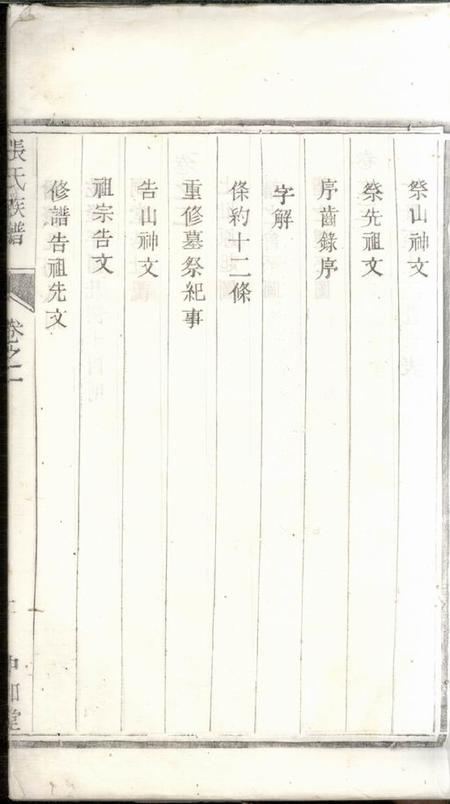 祭山神文
祭先祖文
序齒錄序
字解
條約十二條
重修墓祭紀事
告山神文
祖宗告文
修譜告祖先文
張氏族譜
卷之一